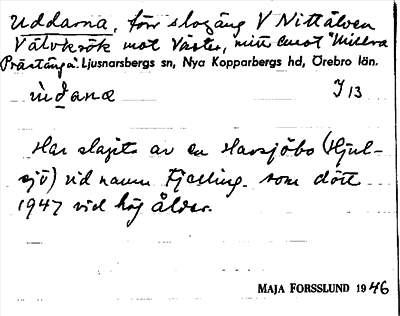 Uddarna, förr slogäng V Nittälven
Välvkrök mot Väster, mitt emot "Millera
Prästänga". Ljusnarsbergs sn, Nya Kopparbergs hd, Örebro län.
ùdana J 13
Har slagits av en Havsjöbo (Hjul-
sjö) vid namn Fjelling som dött
1947 vid hög ålder.
MAJA FORSSLUND 1946